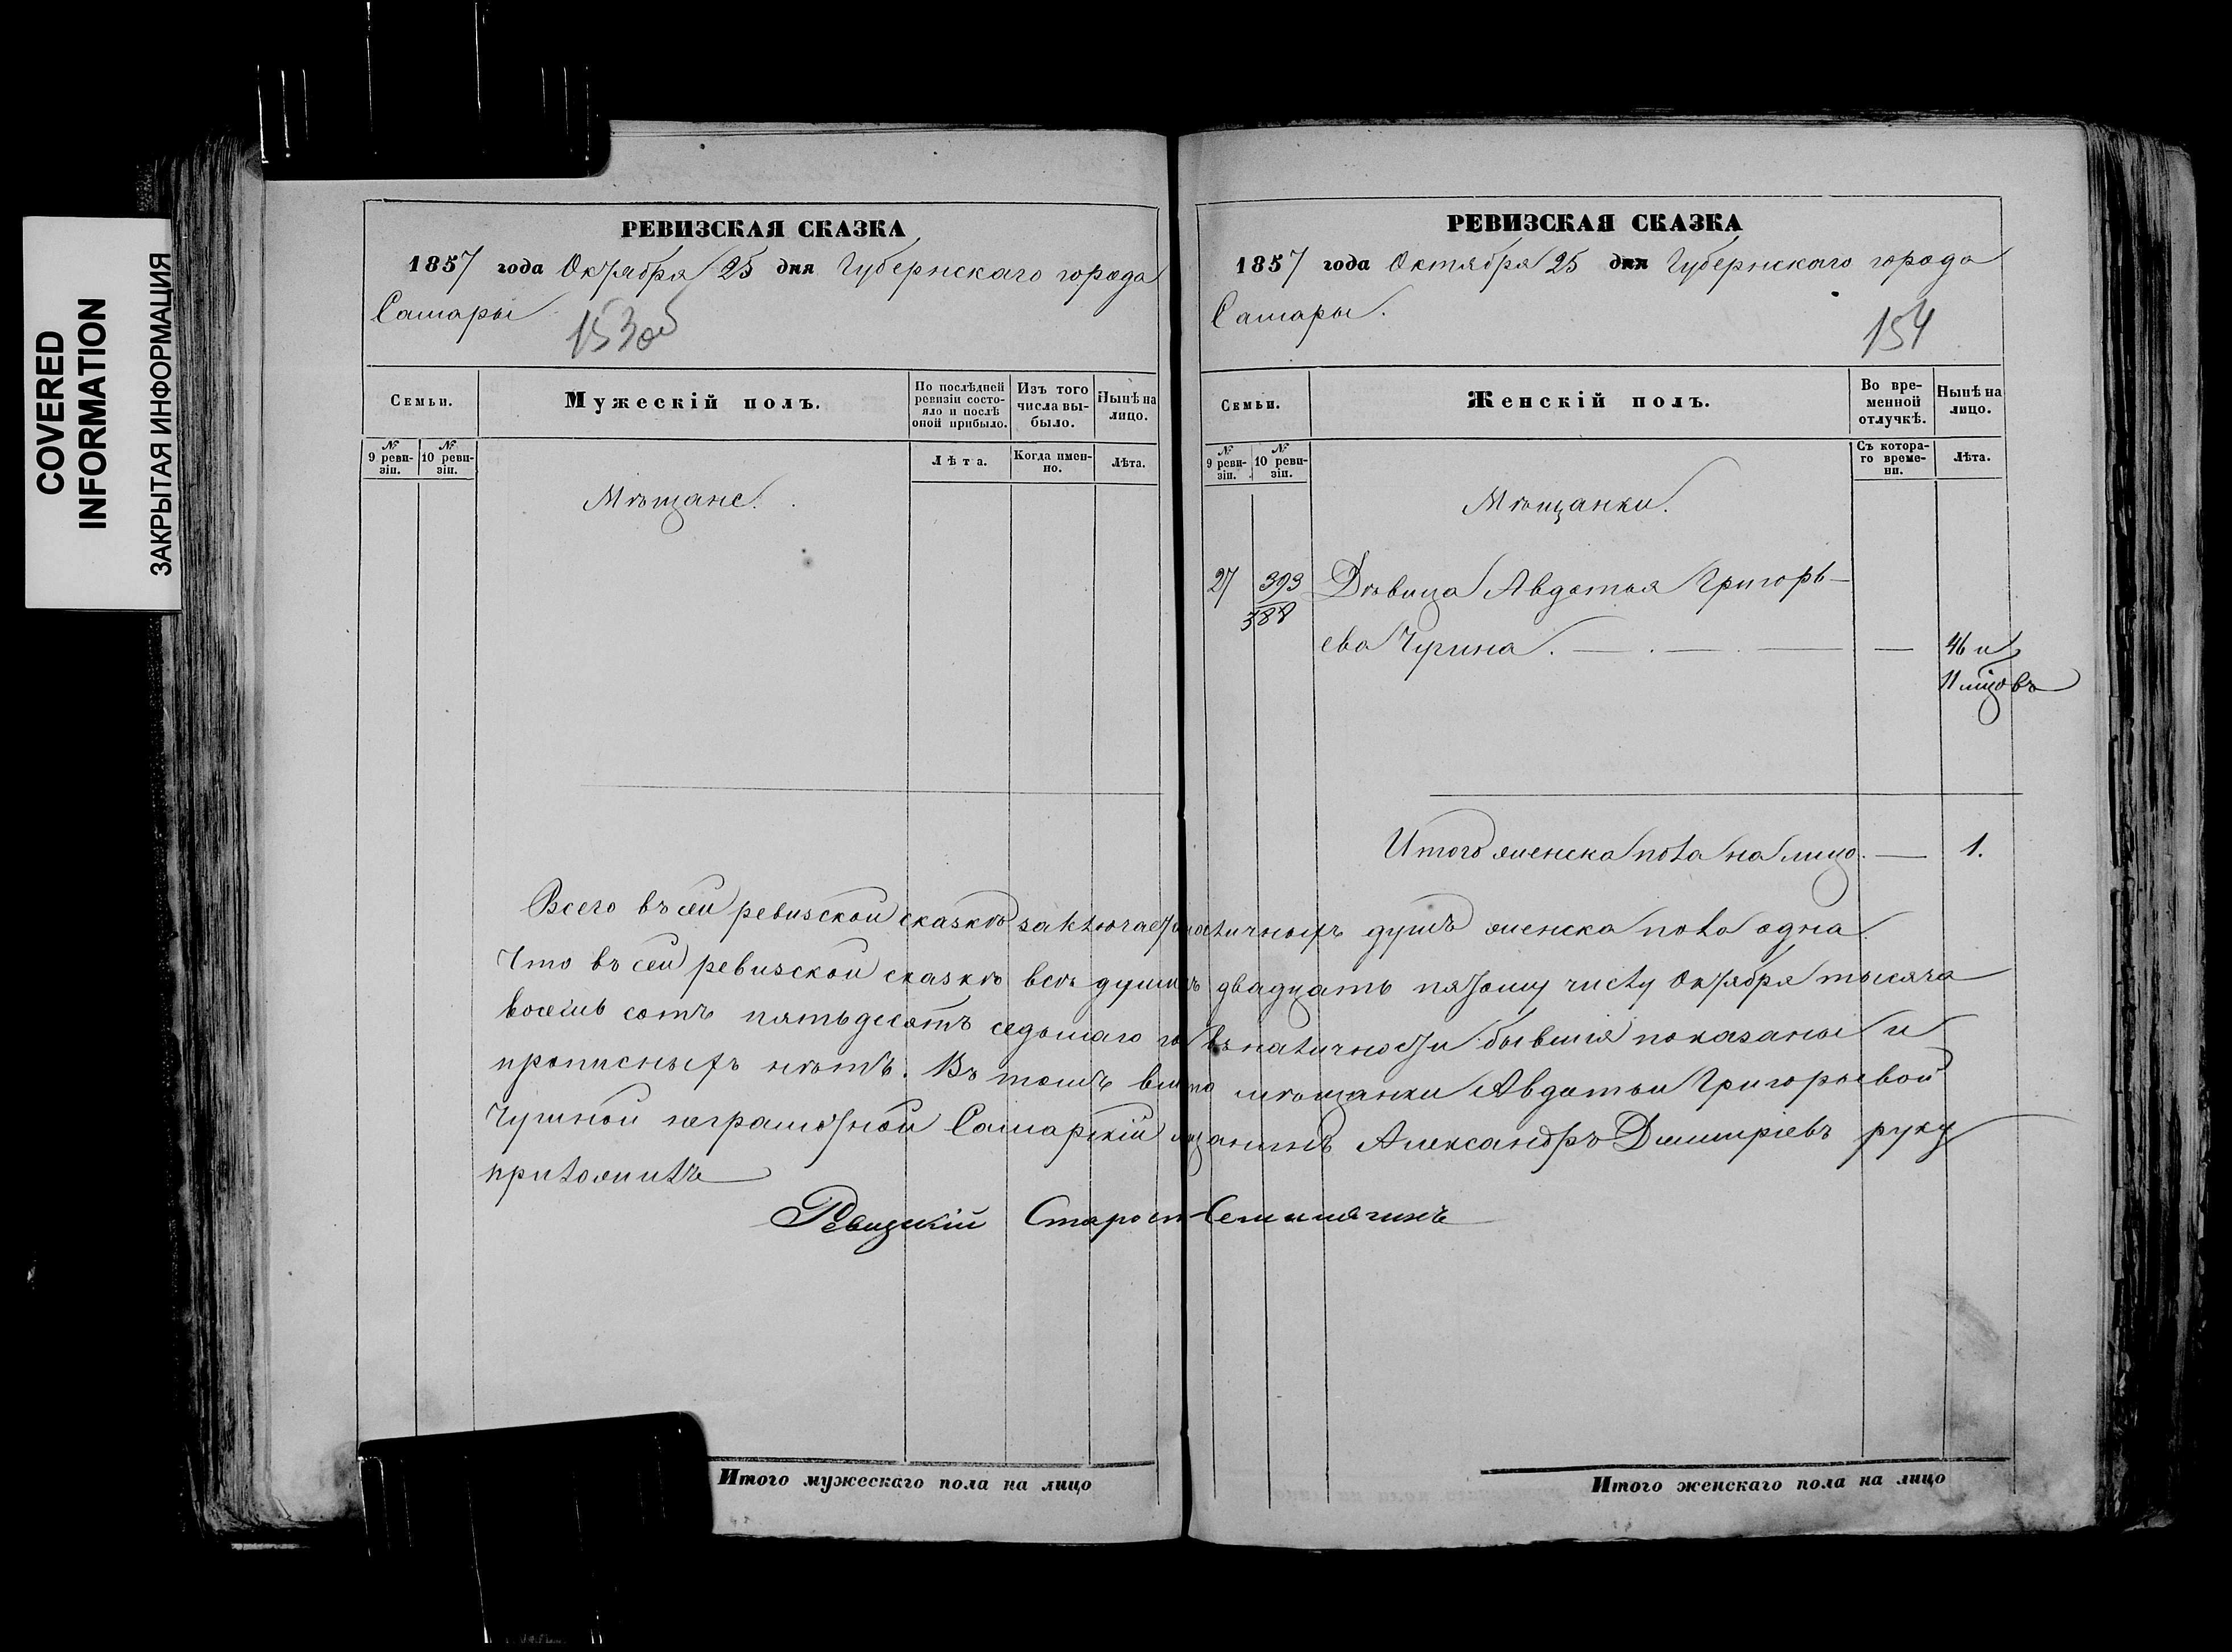 COVERED
INFORMATION
ЗАКРЫТАЯ ИНФОРМАЦИЯ
РЕВИЗСКАЯ СКАЗКА
1857 года Октября 25 дня Губернскаго города
Самары
153об
Семьи.
Мужескій полъ.
По послѣдней ревизіи состояло и послѣ оной прибыло.
Изъ того числа выбыло.
Нынѣ на лицо.
№ 9 ревизіи.
№ 10 ревизіи.
Лѣта.
Когда именно.
Лѣта.
Мѣщане.
РЕВИЗСКАЯ СКАЗКА
1857 года Октября 25 дня Губернскаго города
Самары.
154
Семьи.
Женскій полъ.
Во временной отлучкѣ.
Нынѣ на лицо.
№ 9 ревизіи.
№ 10 ревизіи.
Съ котораго времени.
Лѣта.
Мѣщанки.
27 393 Дѣвица Авдотья Григорь-
388
ева Чурина. — . — . — — 46 и
11 мцовъ
Итого женска пола на лицо. — 1.
Всего въ сей ревизской сказкѣ заключается наличныхъ душъ женска пола одна.
Что въ сей ревизской сказкѣ всѣ души къ двадцать пятому числу Октября тысяча
восемь сотъ пятьдесятъ седьмаго го въ наличности бывшія показаны и
прописныхъ нѣтъ. Въ томъ вмѣсто мѣщанки Авдотьи Григорьевой
Чуриной неграмотной Самарскій мѣщанинъ Александръ Дмитріевъ руку
приложилъ
Ревизскій Старост
Итого мужескаго пола на лицо
Итого женскаго пола на лицо